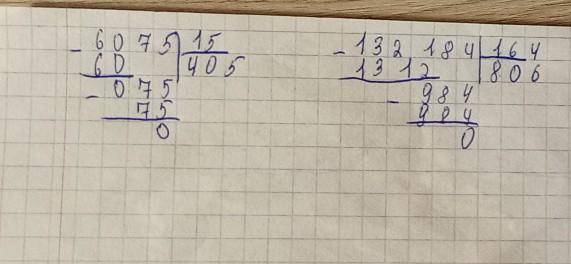 - 6075 | 15
60 | 405
- 075
75
0
- 132 184 | 164
1312 | 806
- 984
984
0